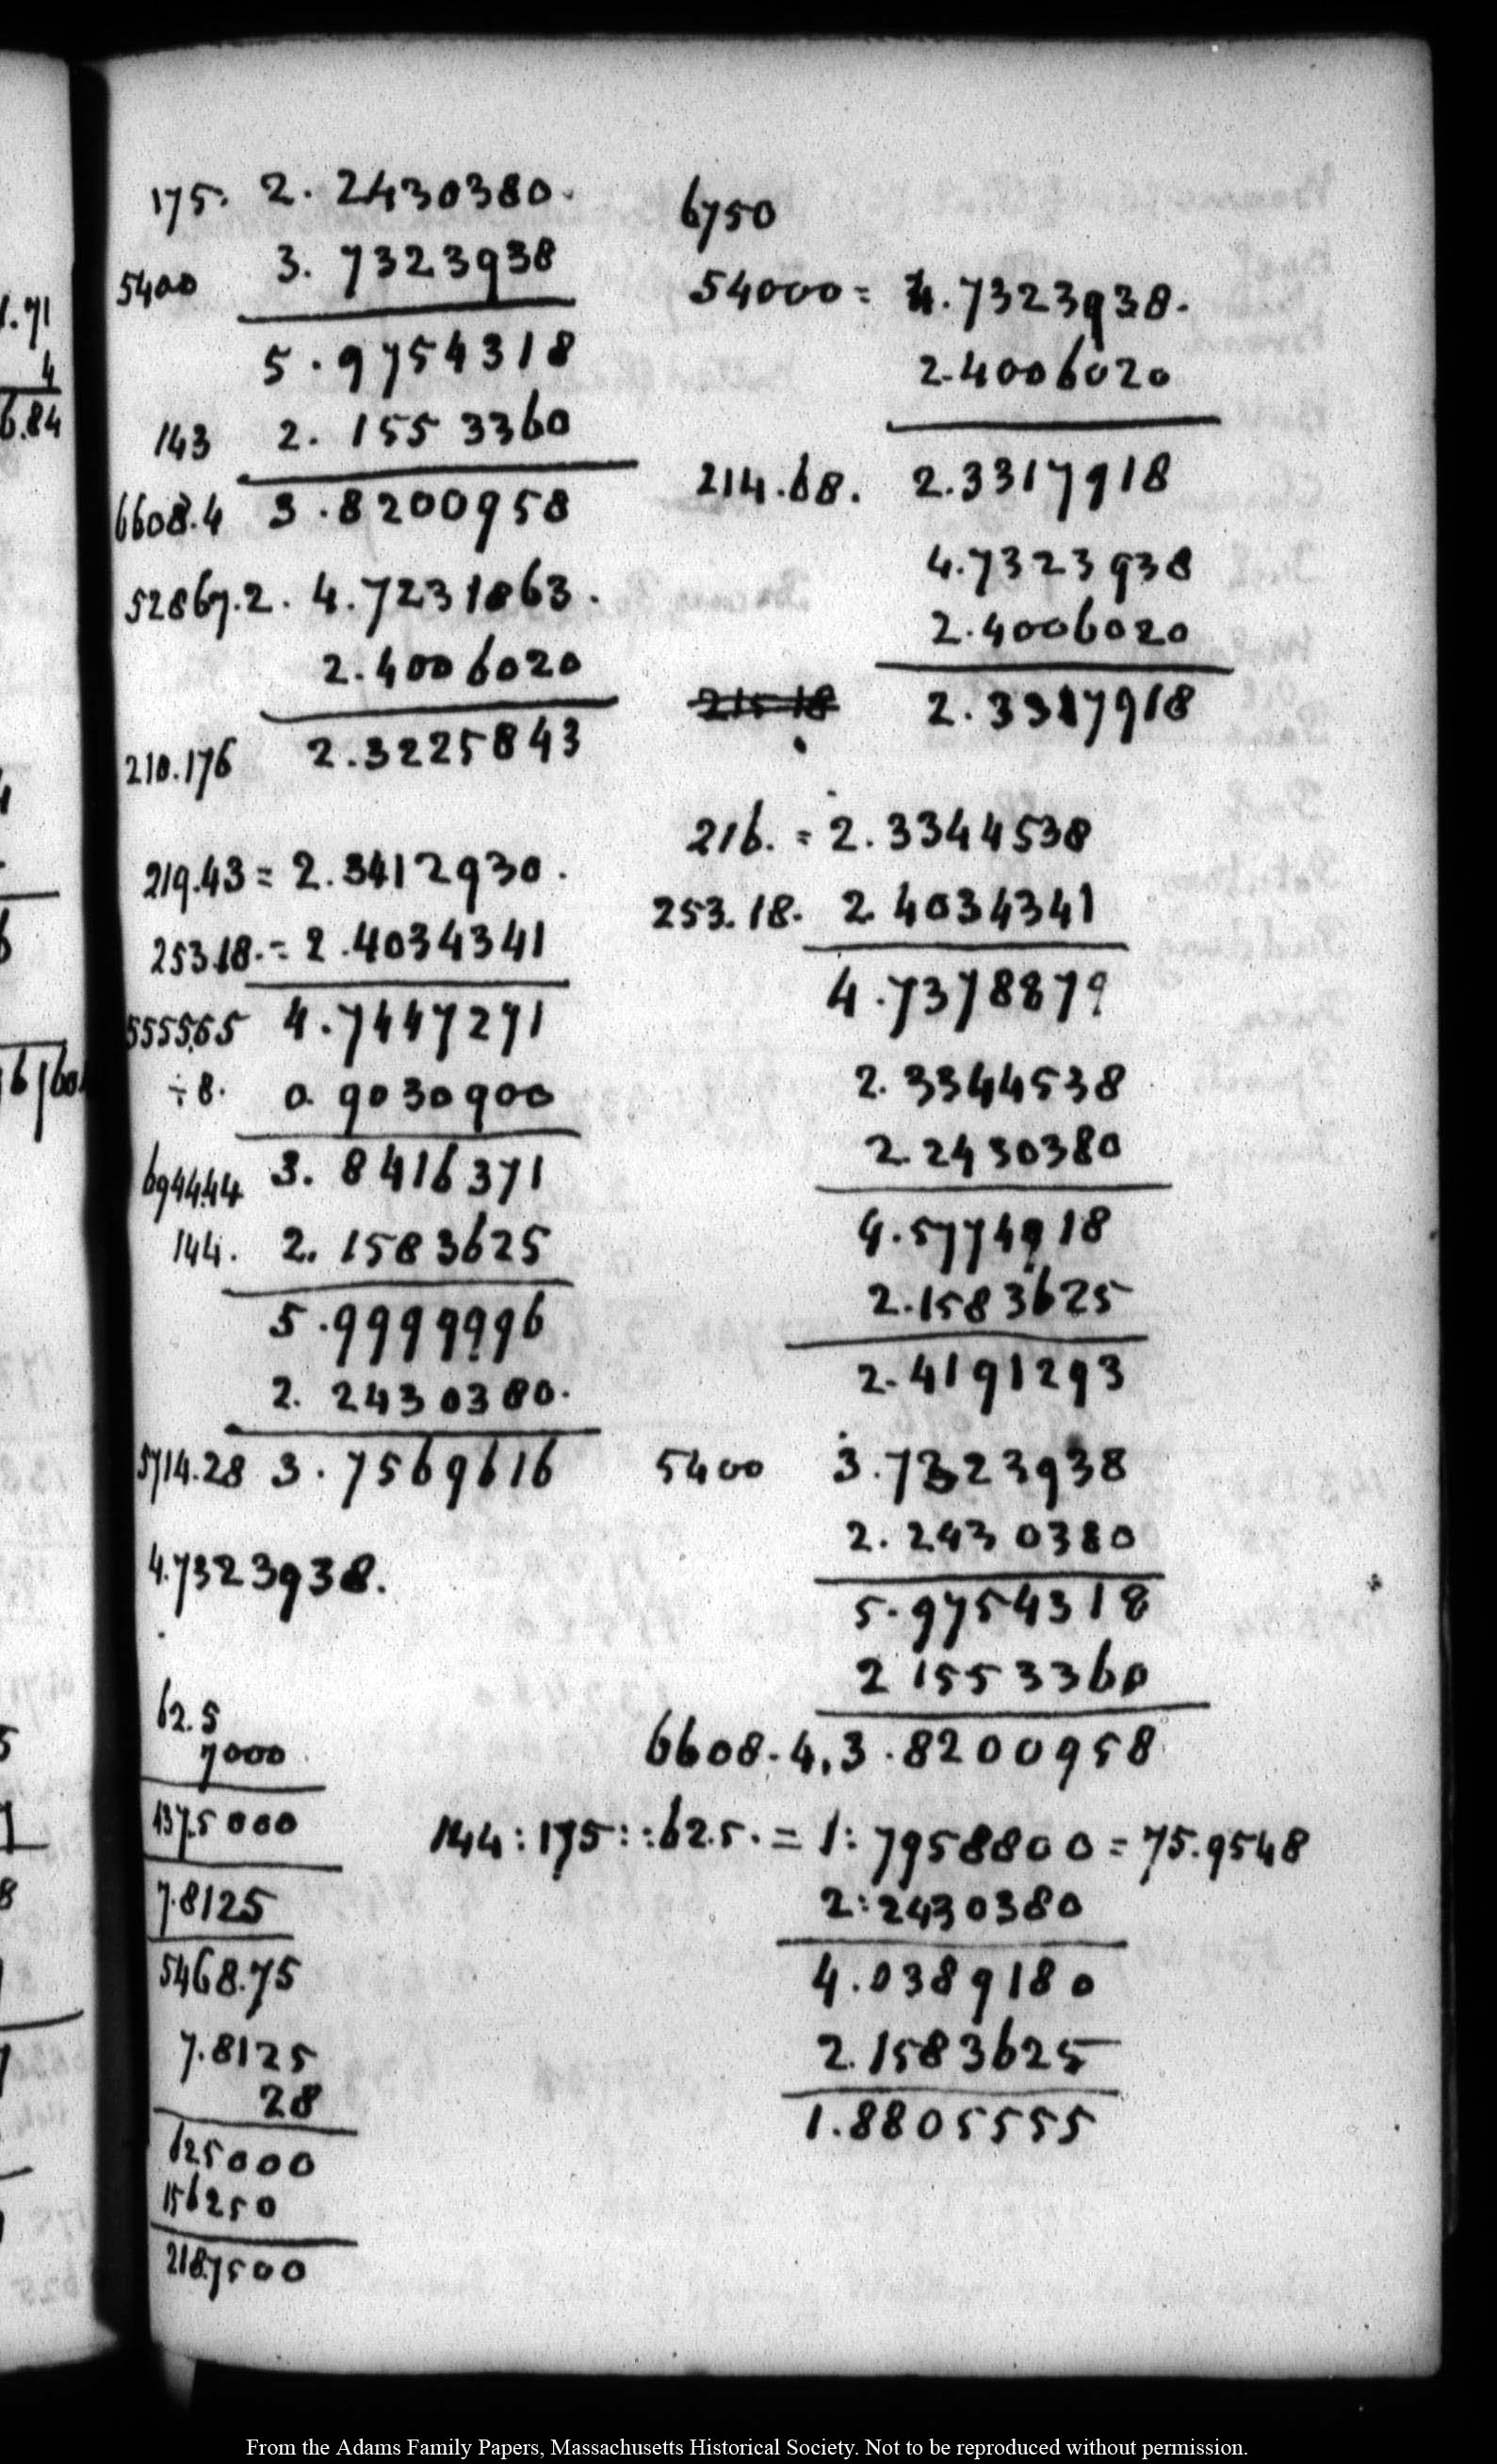 175. 2. 2430380.
5400 3. 7323938
5. 9754318
143 2. 155 3360
6608.4 3. 8200958
52867.2. 4.7231863.
2.4006020
210.176 2.3225843
219.43 = 2.3412930.
253.18. = 2.4034341
55556.5 4.7447271
÷8. 0. 9030900
6944.44 3. 8416371
144. 2. 1583625
5.9999996
2. 2430380.
5714.28 3. 7569616
4.7323938.
62.5
7000
437.5000
7.8125
5468.75
7.8125
28
625000
156250
2187500
6750
54000 = 4.7323938.
2.4006020
214.68. 2.3317918
4.7323938
2.4006020
215 18 2.3317918
216. = 2.3344538
253.18. 2.4034341
4.7378879
2. 3344538
2.2430380
4.5774918
2.1583625
2.4191293
5400 3.7323938
2. 2430380
5.9754318
2 1553360
6608.4, 3.8200958
144 : 175 : : 62.5. = 1: 7958800 = 75.9548
2: 2430380
4.0389180
2.1583625
1.8805555
1.71
4
6.84
From the Adams Family Papers, Massachusetts Historical Society. Not to be reproduced without permission.